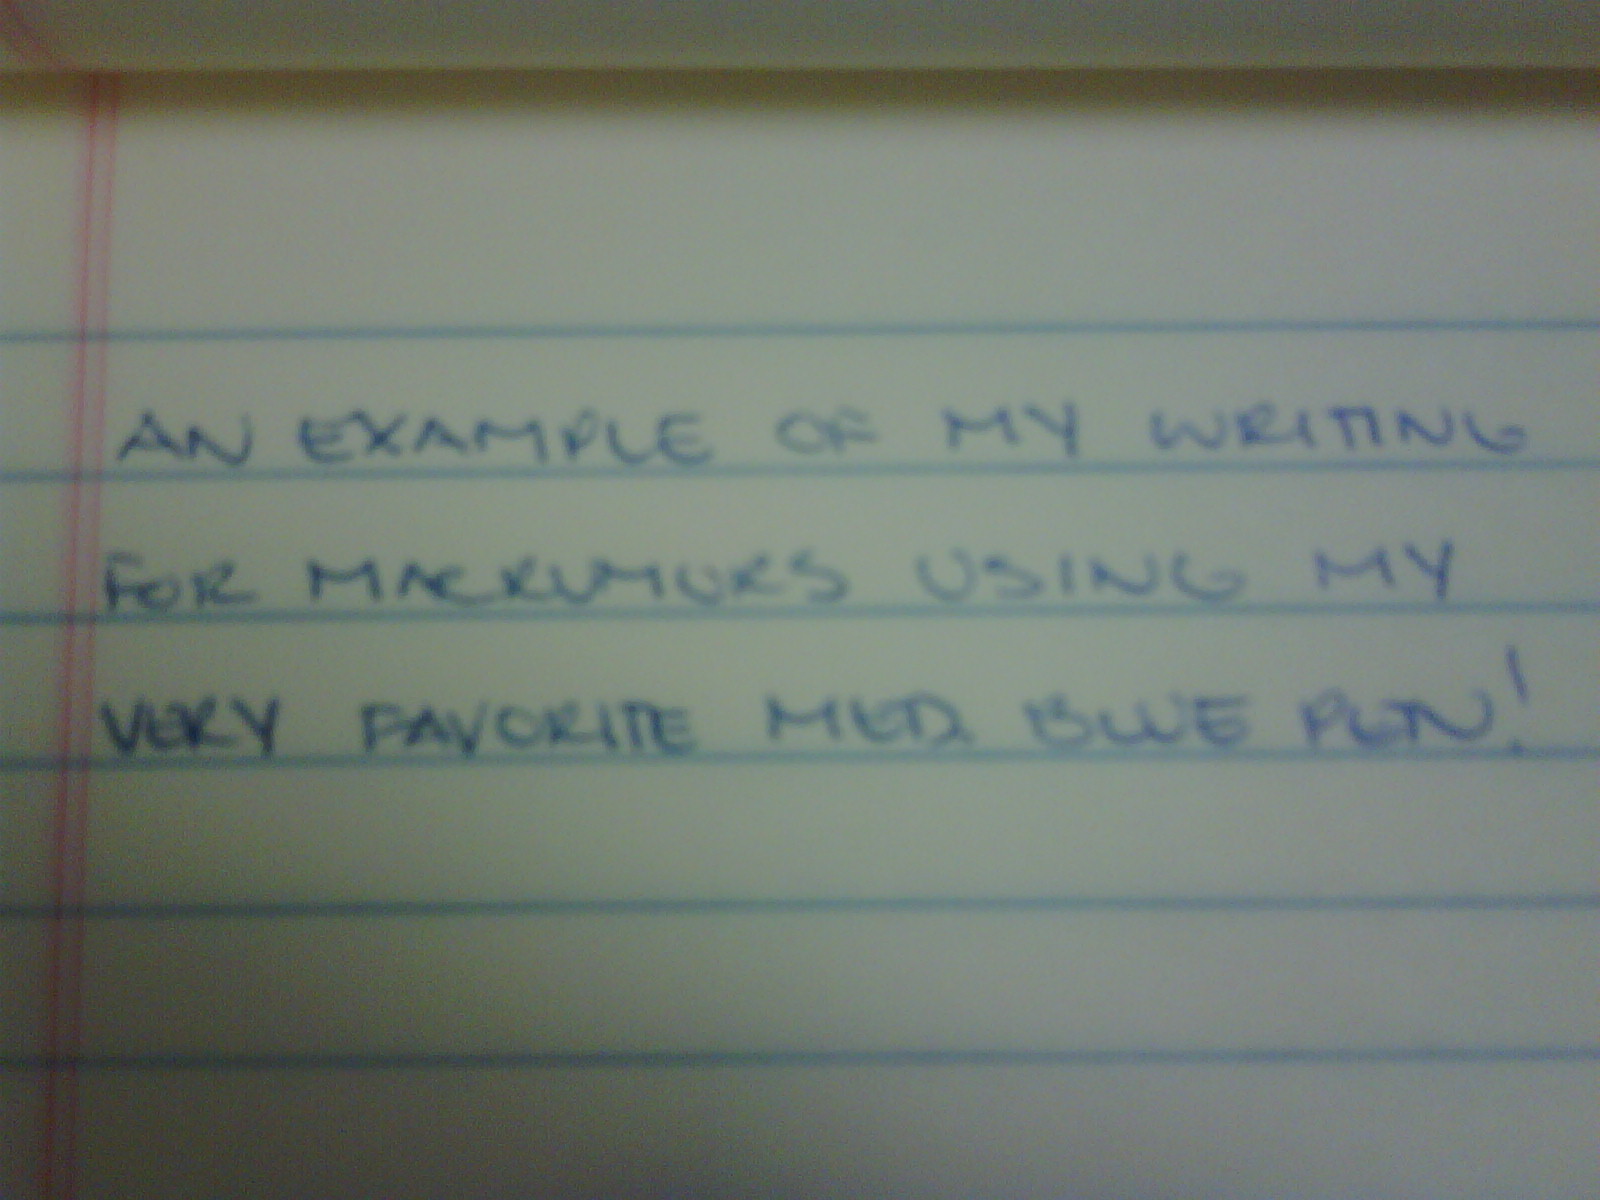 AN EXAMPLE OF MY WRITING
FOR MACRUMORS USING MY
VERY FAVORITE MED. BLUE PEN!